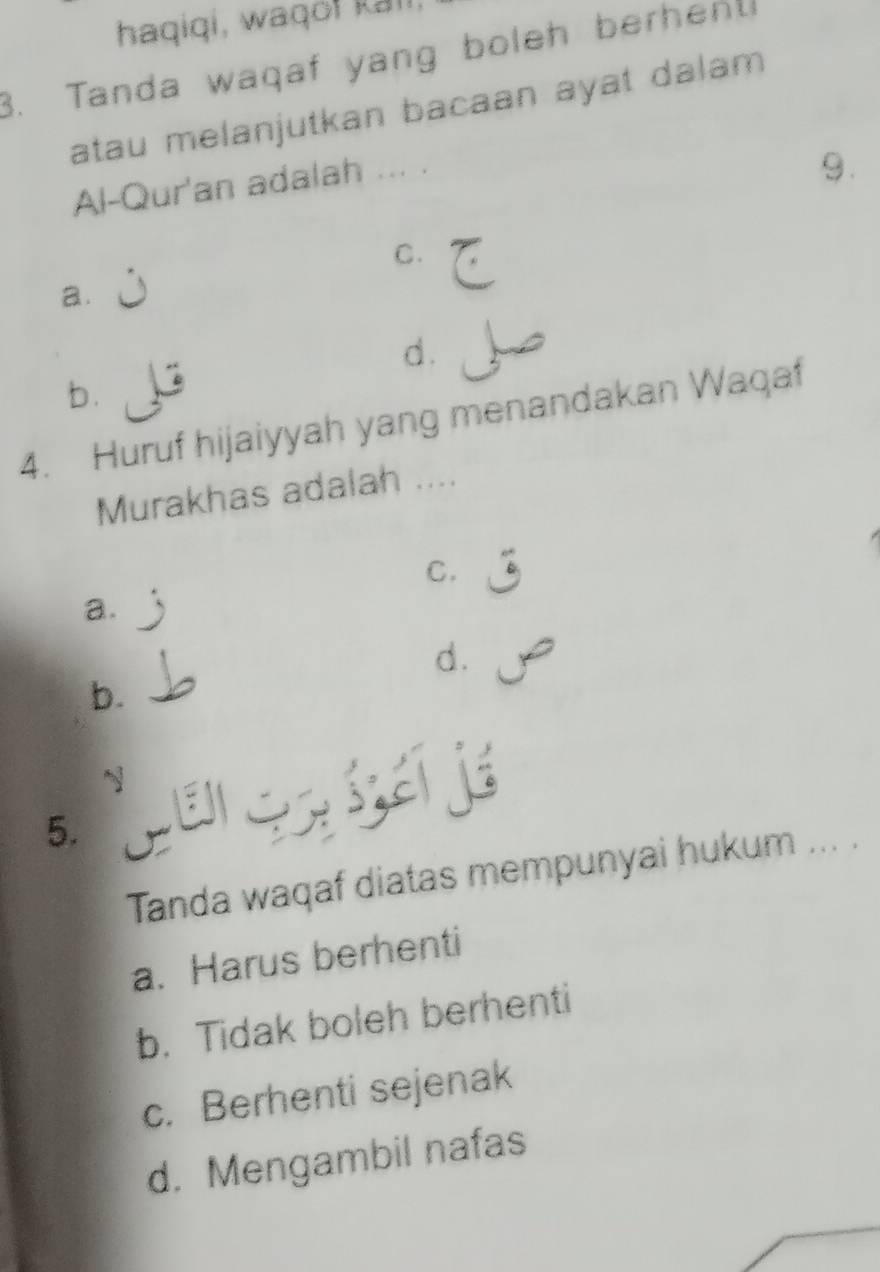 haqiqi, waqof
3. Tanda waqaf yang boleh berhenti
atau melanjutkan bacaan ayat dalam
Al-Qur'an adalah ... .
a. ن
b. قلى
c. ج
d. صلى
4. Huruf hijaiyyah yang menandakan Waqaf
Murakhas adalah ....
a. ز
b. ط
c. ق
d. ص
5. قُلْ اَعُوْذُ بِرَبِّ النَّاسِ لا
Tanda waqaf diatas mempunyai hukum ... .
a. Harus berhenti
b. Tidak boleh berhenti
c. Berhenti sejenak
d. Mengambil nafas
9.